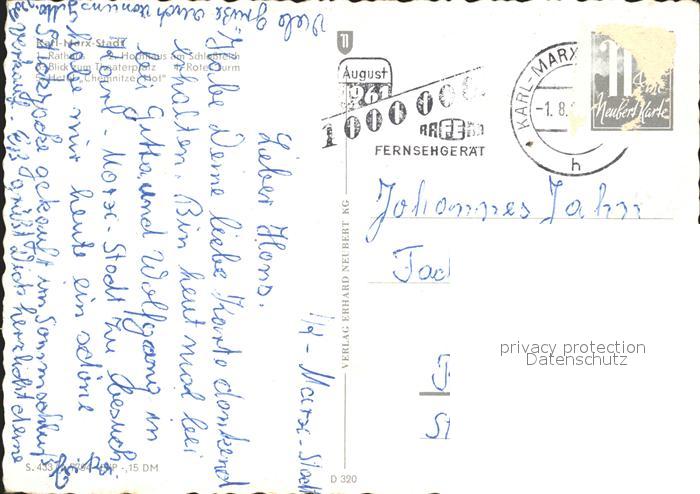 Karl-Marx-Stadt
1. Rathaus 2. Hochhaus am Schloßteich
3. Blick zum Theaterplatz 4. Roter Turm
5. Hotel „Chemnitzer Hof"
Viele Grüße auch von
K-Marx-Stadt
Lieber Hans.
Habe Deine liebe Karte dankend
erhalten. Bin heut mal bei
Gitta und Wolfgang in
Karl-Marx-Stadt zu Besuch
habe mir heute ein schöne
Strickjacke gekauft im Sommerschluß-
verkauf. Es grüßt Dich herzlichst deine
VERLAG ERHARD NEUBERT KG
August
1961
1000000
RAFENA
FERNSEHGERÄT
KARL-MARX
-1. 8.
h
Neubert Karte
Johannes Jahn
privacy protection
Datenschutz
,15 DM
D 320